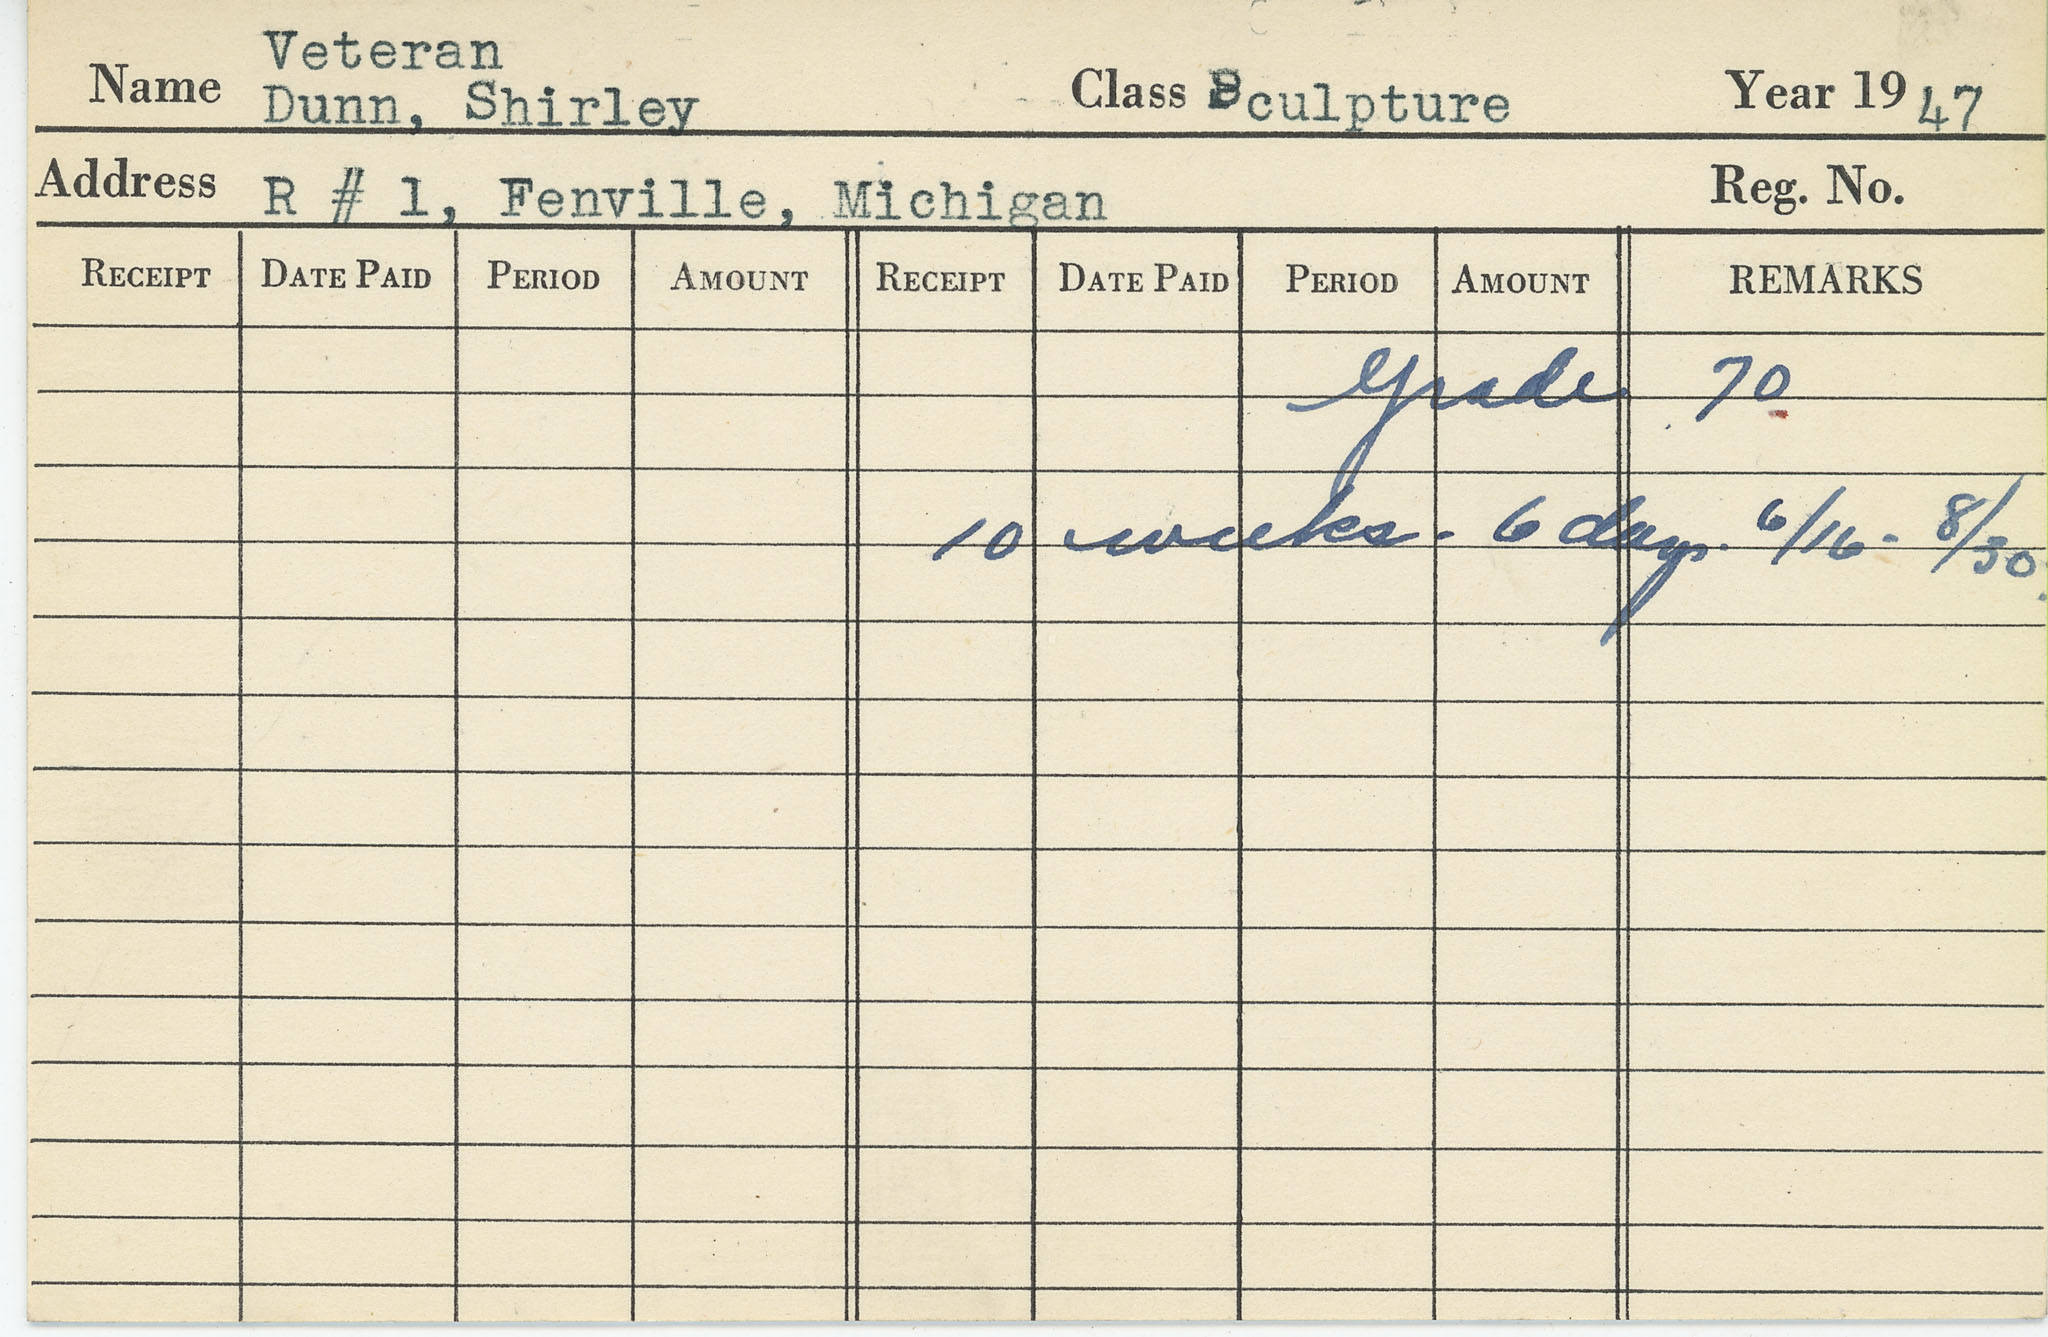 Veteran
Name Dunn, Shirley Class Sculpture Year 1947
Address R # 1, Fenville, Michigan Reg. No.
RECEIPT DATE PAID PERIOD AMOUNT RECEIPT DATE PAID PERIOD AMOUNT REMARKS
Grade 70
10 weeks - 6 days. 6/16 - 8/30.